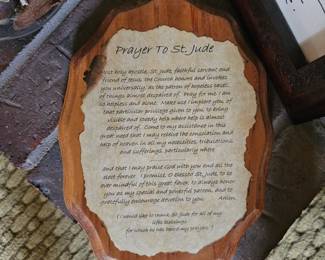 Prayer To St. Jude
Most holy apostle, St. Jude, faithful servant and
friend of Jesus, the Church honors and invokes
you universally, as the patron of hopeless cases,
of things almost despaired of. Pray for me, I am
so hopeless and alone. Make use I implore you, of
that particular privilege given to you, to bring
visible and speedy help where help is almost
despaired of. Come to my assistance in this
great need that I may receive the consolation and
help of heaven in all my necessities, tribulations,
and sufferings, particularly where
and that I may praise God with you and all the
elect forever. I promise, O blessed St. Jude, to be
ever mindful of this great favor, to always honor
you as my special and powerful patron, and to
gratefully encourage devotion to you. Amen.
(I would like to thank St. Jude for all of my
lifes blessings
for which he has heard my prayers.)